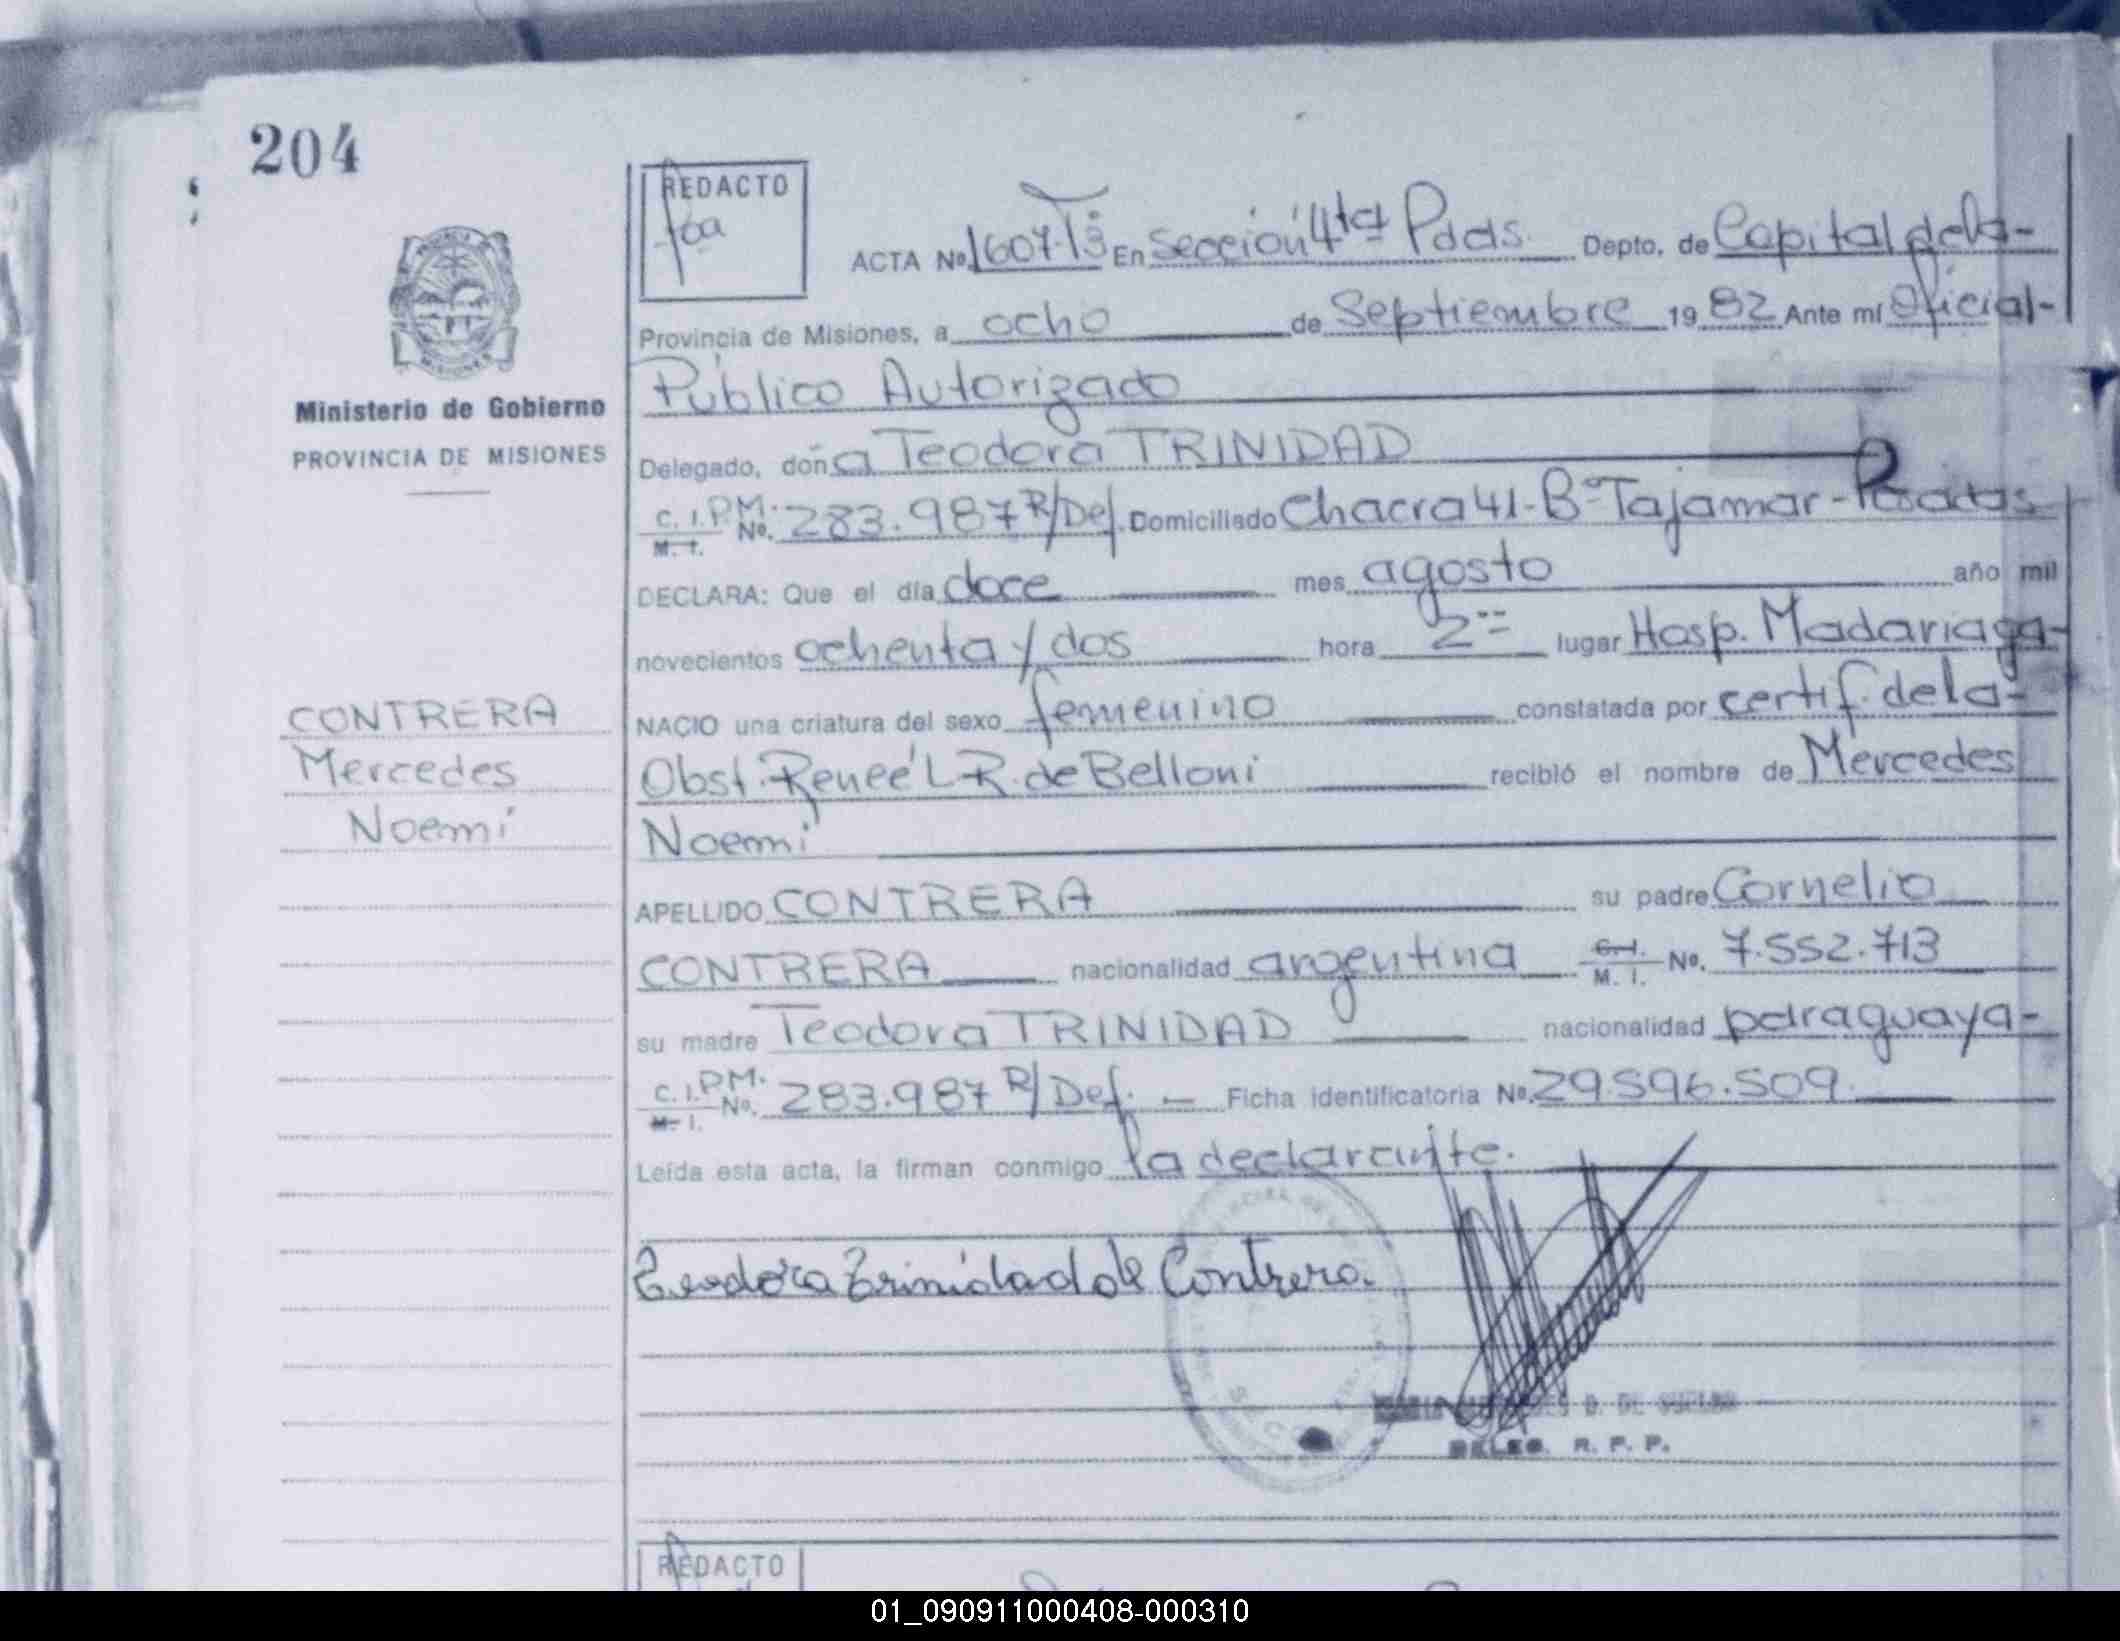 204
REDACTO
ACTA Nº 1607-T3 En Sección 4ta Pdas. Depto. de Capital de la-
Provincia de Misiones, a ocho de Septiembre 1982 Ante mí Oficial-
Público Autorizado
Ministerio de Gobierno
PROVINCIA DE MISIONES
Delegado, doña Teodora TRINIDAD
C. I. P.M. Nº. 283.987 R/Def. Domiciliado Chacra 41-Bº Tajamar-Posadas
M. I.
DECLARA: Que el día doce mes agosto año mil
novecientos ochenta y dos hora 2== lugar Hosp. Madariaga-
CONTRERA
Mercedes
Noemí
NACIO una criatura del sexo femenino constatada por certif. de la-
Obst. Reneé L R. de Belloni recibió el nombre de Mercedes
Noemí
APELLIDO CONTRERA su padre Cornelio
CONTRERA nacionalidad argentina C. I. M. I. Nº. 7.552.713
su madre Teodora TRINIDAD nacionalidad paraguaya-
C. I. P.M. Nº. 283.987 R/Def. - Ficha identificatoria Nº. 29.596.509.
M. I.
Leída esta acta, la firman conmigo la declarante.
Teodora Trinidad de Contrera.
DELEG. R. P. P.
REDACTO
01_090911000408-000310